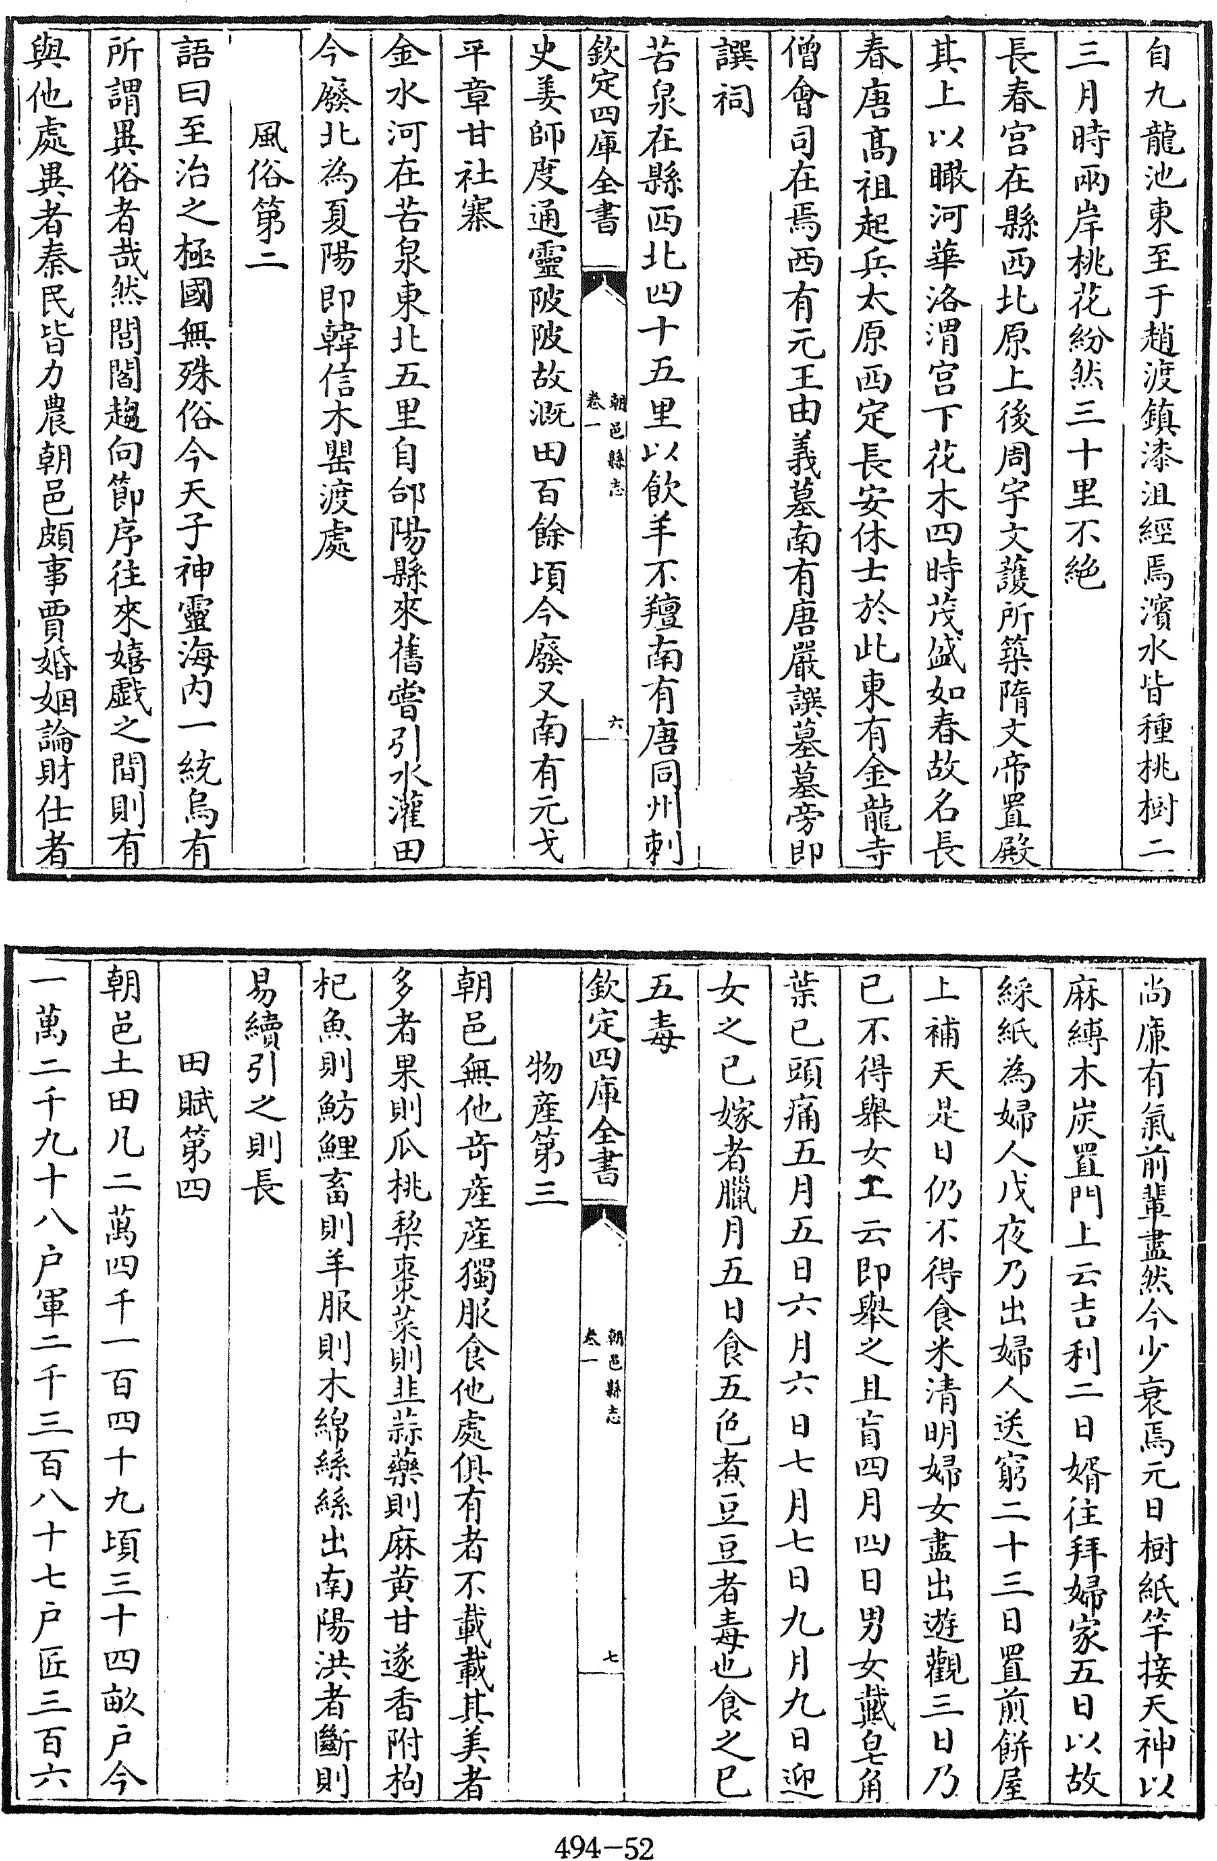 自九龍池東至于趙渡鎮漆沮經焉濱水皆種桃樹二
三月時兩岸桃花紛然三十里不絶
長春宫在縣西北原上後周宇文護所築隋文帝置殿
其上以瞰河華洛渭宫下花木四時茂盛如春故名長
春唐髙祖起兵太原西定長安休士於此東有金龍寺
僧會司在焉西有元王由義墓南有唐嚴譔墓墓旁即
譔祠
苦泉在縣西北四十五里以飲羊不羶南有唐同州刺
欽定四庫全書
朝邑縣志
卷一
六
史姜師度通靈陂陂故溉田百餘頃今廢又南有元戈
平章甘社寨
金水河在苦泉東北五里自郃陽縣來舊嘗引水灌田
今廢北為夏陽即韓信木罌渡處
風俗第二
語曰至治之極國無殊俗今天子神靈海内一統烏有
所謂異俗者哉然閭閻趨向節序往來嬉戲之間則有
與他處異者秦民皆力農朝邑頗事賈婚姻論財仕者
尚廉有氣前輩盡然今少衰焉元日樹紙竿接天神以
麻縛木炭置門上云吉利二日婿往拜婦家五日以故
綵紙為婦人戊夜乃出婦人送窮二十三日置煎餅屋
上補天是日仍不得食米清明婦女盡出遊觀三日乃
已不得舉女工云即舉之且盲四月四日男女戴皂角
葉已頭痛五月五日六月六日七月七日九月九日迎
女之已嫁者臘月五日食五色煮豆豆者毒也食之已
五毒
欽定四庫全書
朝邑縣志
卷一
七
物産第三
朝邑無他竒産産獨服食他處俱有者不載載其美者
多者果則瓜桃梨棗菜則韭蒜藥則麻黄甘遂香附枸
杞魚則魴鯉畜則羊服則木綿絲絲出南陽洪者斷則
易續引之則長
田賦第四
朝邑土田凡二萬四千一百四十九頃三十四畝户今
一萬二千九十八户軍二千三百八十七户匠三百六
494-52